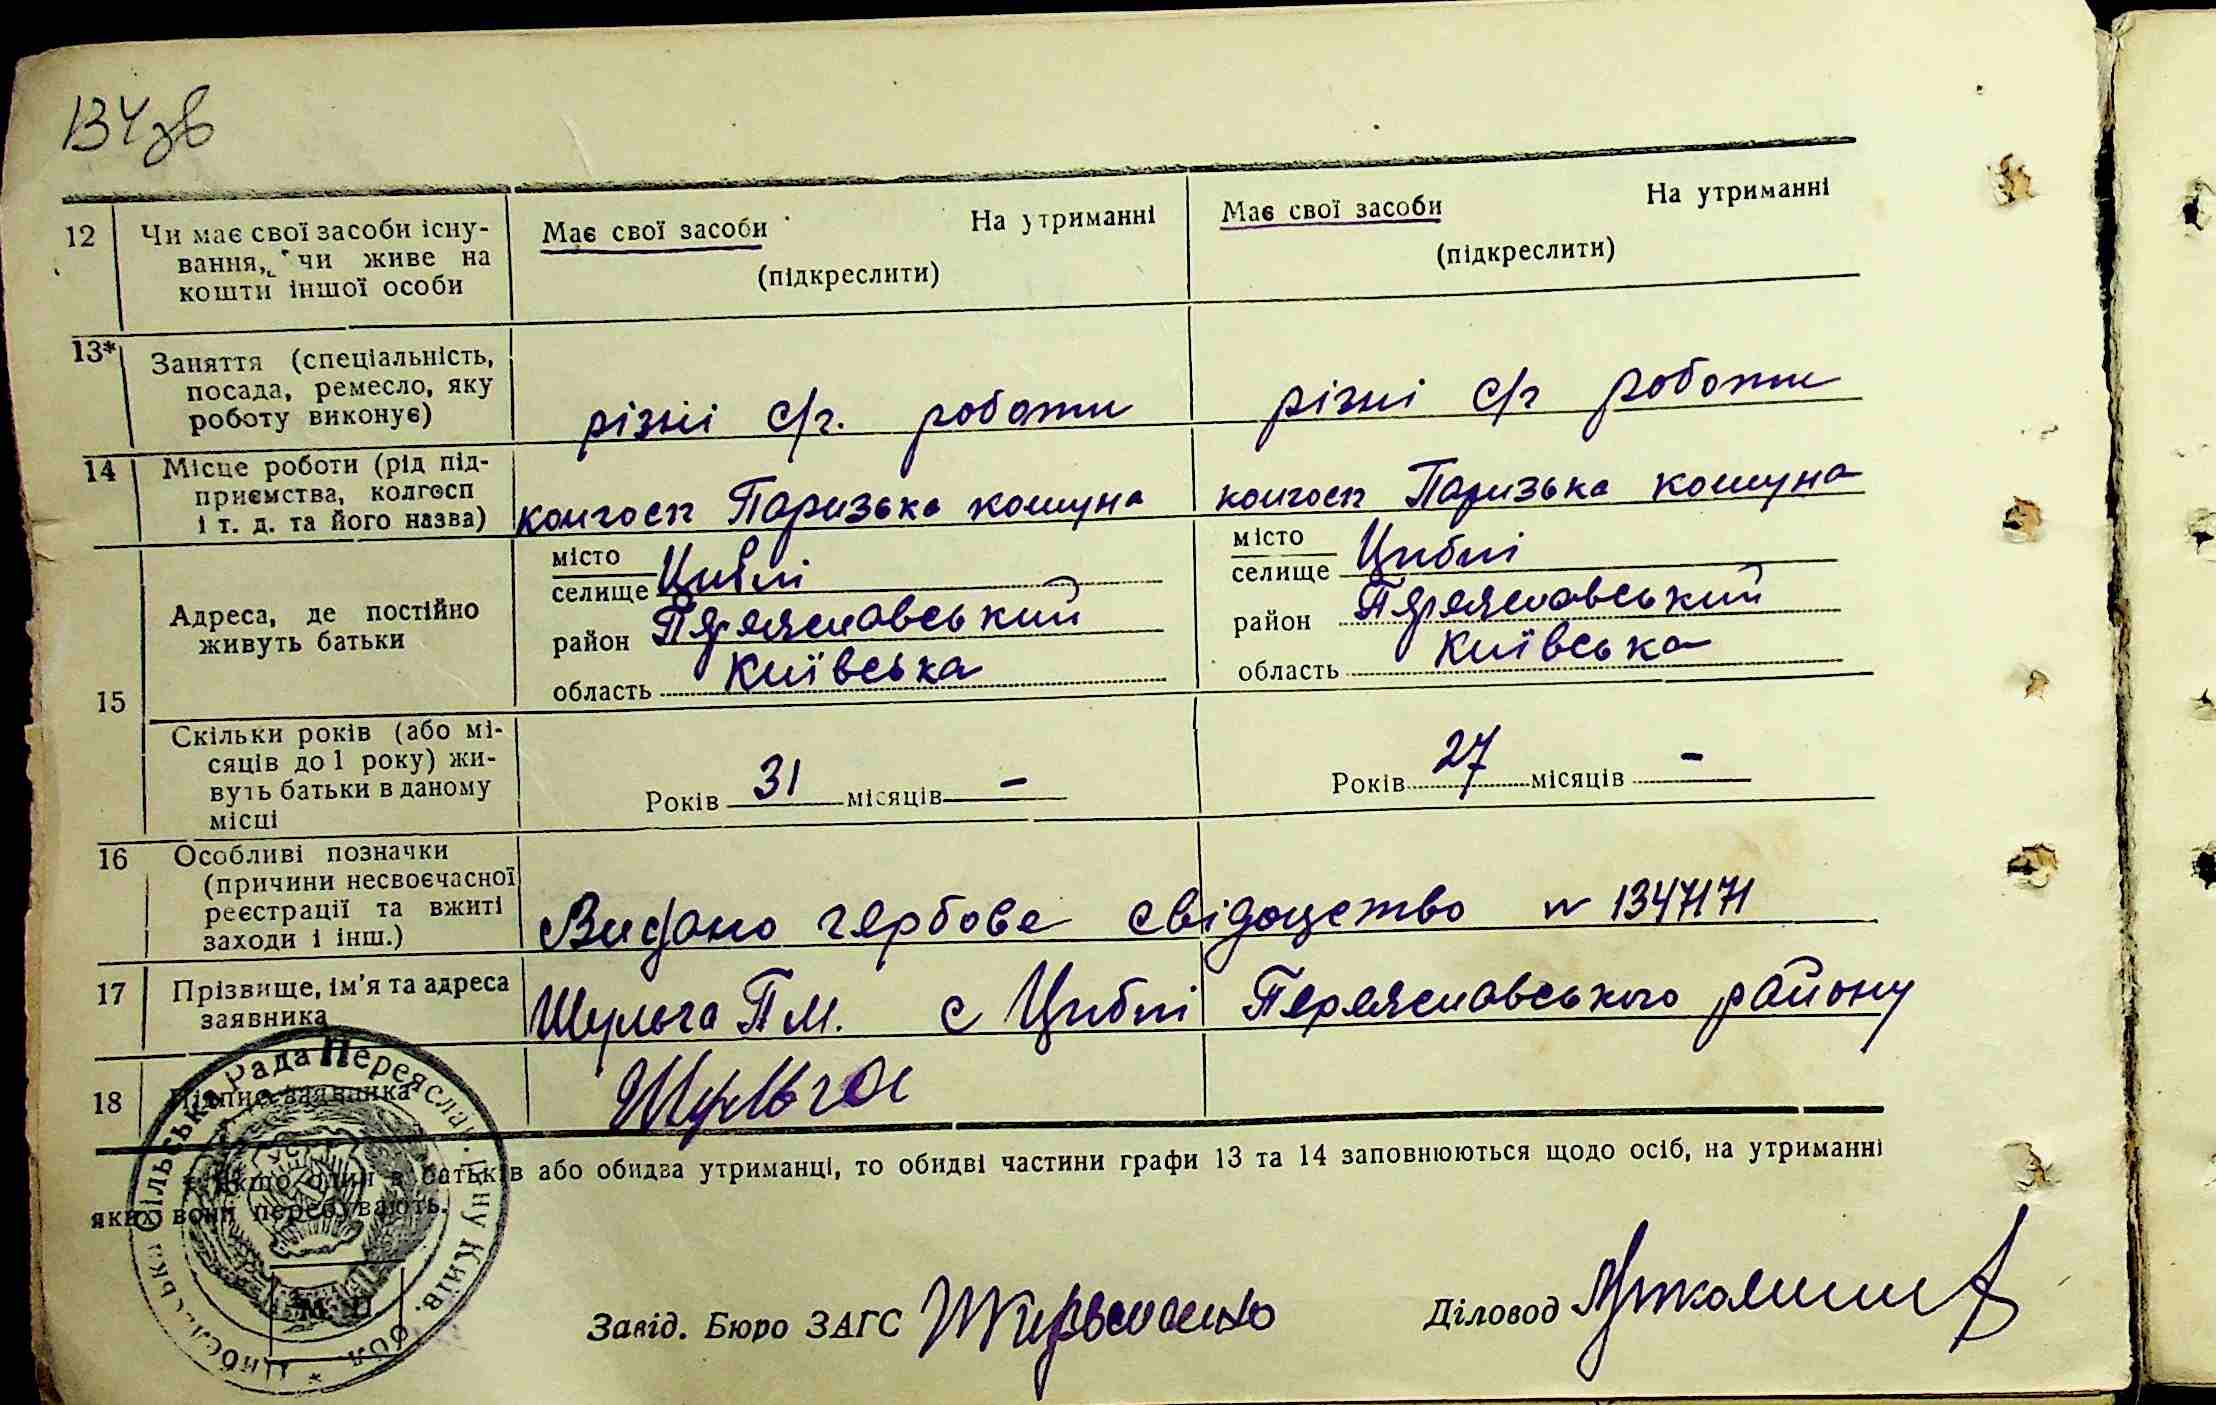 134 зв
12 Чи має свої засоби існу-
вання, чи живе на
кошти іншої особи
Має свої засоби На утриманні
(підкреслити)
Має свої засоби На утриманні
(підкреслити)
13* Заняття (спеціальність,
посада, ремесло, яку
роботу виконує)
різні с/г. роботи
різні с/г роботи
14 Місце роботи (рід під-
приємства, колгосп
і т. д. та його назва)
колгосп Паризька комуна
колгосп Паризька комуна
15 Адреса, де постійно
живуть батьки
місто
селище Циблі
район Переяславський
область Київська
місто
селище Циблі
район Переяславський
область Київська
Скільки років (або мі-
сяців до 1 року) жи-
вуть батьки в даному
місці
Років 31 місяців –
Років 27 місяців –
16 Особливі позначки
(причини несвоєчасної
реєстрації та вжиті
заходи і інш.)
Видано гербове свідоцтво № 1347171
17 Прізвище, ім'я та адреса
заявника
Шульга П М. с Циблі Переяславського району
18 Підпис заявника
Шульга
* Якщо один з батьків або обидва утриманці, то обидві частини графи 13 та 14 заповнюються щодо осіб, на утриманні
яких вони перебувають.
М. П.
Завід. Бюро ЗАГС
Діловод
сільська Рада Переяслав. р-ну Київ. обл.
УРСР